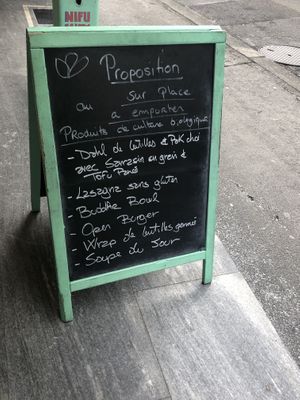 NIFU
Proposition
sur Place
ou a emporter
Produits de culture biologique
- Dahl de lentilles et Pak choi
avec Sarrasin en grain et
Tofu Pané
- Lasagne sans gluten
- Buddha Bowl
- Open Burger
- Wrap de lentilles germé
- Soupe du Jour